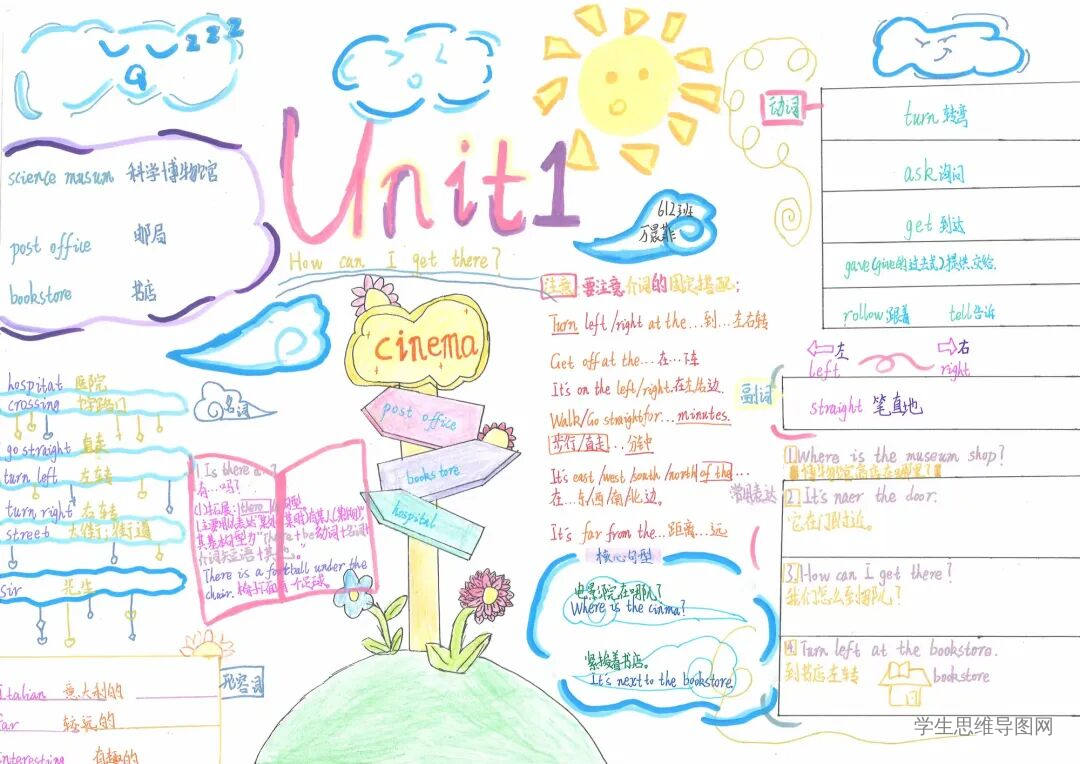 Unit1
How can I get there?
612班
science musum 科学博物馆
post office 邮局
bookstore 书店
名词
hospitat 医院
crossing 十字路口
go straight 直走
turn left 左车转
turn right 右车转
street 大街;街道
sir 先生
形容词
Italian 意大利的
far 较远的
interesting 有趣的
1 Is there a...?
有...吗?
There is a football under the
chair.
cinema
post office
bookstore
hospital
注意 要注意介词的固定搭配:
Turn left/right at the...到...左右转
Get off at the...在...下车
It's on the left/right.在左右边.
Walk/Go straight for... minutes.
步行/直走...分钟
It's east/west/south/north of the...
在...东/西/南/北边.
It's far from the...距离...远
核心句型
电影院在哪队?
Where is the cinma?
紧挨着书店。
It's next to the bookstore.
动词
turn 转弯
ask 询问
get 到达
gave(give的过去式)提供;交给.
rollow 跟着 tell 告诉
左 右
left right
副词
straight 笔直地
常用表达
1.Where is the museum shop?
博物馆商店在哪里?
2.It's naer the door.
它在门附近。
3.How can I get there?
我们怎么到那队?
4.Turn left at the bookstore.
到书店左转
bookstore
学生思维导图网